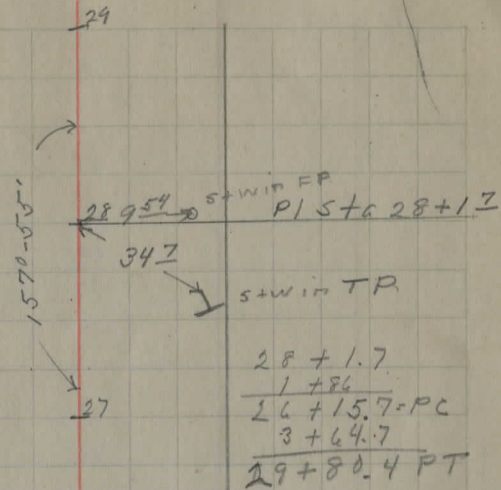 29
157°-55'
28 9 54 s+w in FP PI Sta 28+1 7
34 7
s+w in TP
28 + 1.7
1 + 86
27
26 + 15.7 = PC
3 + 64.7
29 + 80.4 PT